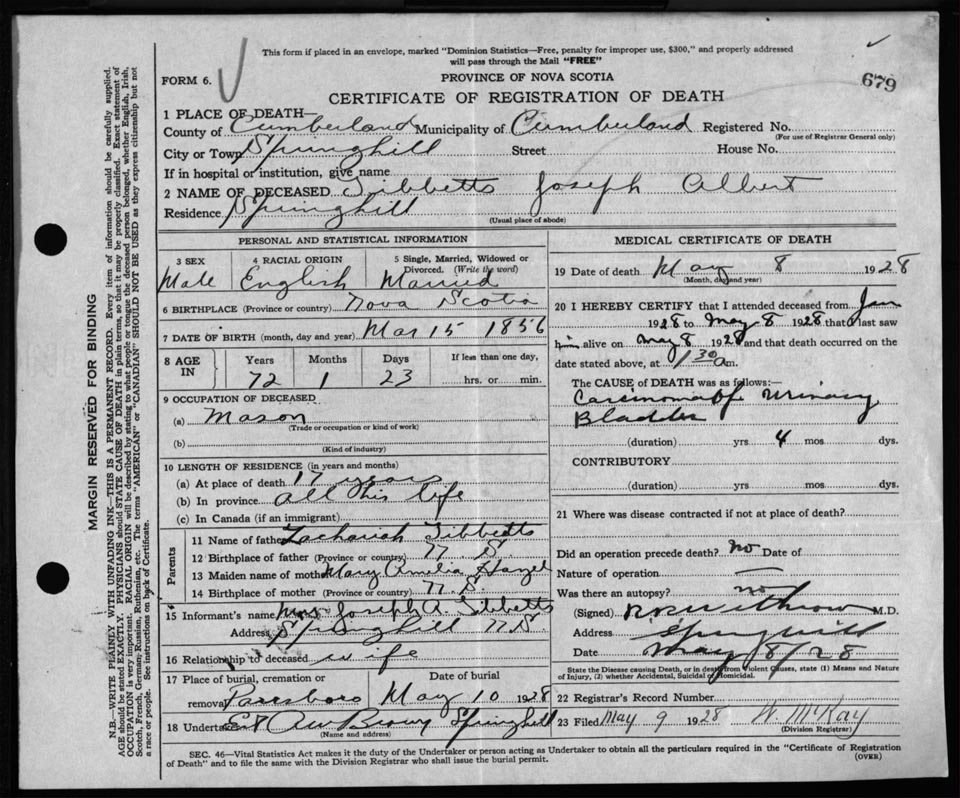 This form if placed in an envelope, marked "Dominion Statistics—Free, penalty for improper use, $300," and properly addressed
will pass through the Mail "FREE"
FORM 6.
PROVINCE OF NOVA SCOTIA
679
CERTIFICATE OF REGISTRATION OF DEATH
1 PLACE OF DEATH—
County of Cumberland Municipality of Cumberland Registered No.
(For use of Registrar General only)
City or Town Springhill Street House No.
If in hospital or institution, give name
2 NAME OF DECEASED Tibbetts Joseph Albert
Residence Springhill
(Usual place of abode)
PERSONAL AND STATISTICAL INFORMATION
3 SEX 4 RACIAL ORIGIN 5 Single, Married, Widowed or
Divorced. (Write the word)
Male English Married
6 BIRTHPLACE (Province or country) Nova Scotia
7 DATE OF BIRTH (month, day and year) Mar 15 1856
8 AGE IN Years Months Days If less than one day,
72 1 23 hrs. or min.
9 OCCUPATION OF DECEASED
(a) Mason
(Trade or occupation or kind of work)
(b)
(Kind of industry)
10 LENGTH OF RESIDENCE (in years and months)
(a) At place of death 17 years
(b) In province all his life
(c) In Canada (if an immigrant)
Parents
11 Name of father Zachariah Tibbetts
12 Birthplace of father (Province or country) N. S.
13 Maiden name of mother Mary Amelia
14 Birthplace of mother (Province or country) N. S.
15 Informant's name Mrs Joseph A Tibbetts
Address Springhill N.S.
16 Relationship to deceased wife
17 Place of burial, cremation or Date of burial
removal Parrsboro May 10 1928
18 Undertaker Brown Springhill
(Name and address)
MEDICAL CERTIFICATE OF DEATH
19 Date of death May 8 1928
(Month, day and year)
20 I HEREBY CERTIFY that I attended deceased from Jan
1928 to May 8 1928 that I last saw
him alive on May 8 1928 and that death occurred on the
date stated above, at 1 30 a m.
The CAUSE of DEATH was as follows:—
Carcinoma of Urinary
Bladder
(duration) yrs 4 mos dys.
CONTRIBUTORY
(duration) yrs. mos. dys.
21 Where was disease contracted if not at place of death?
Did an operation precede death? no Date of
Nature of operation —
Was there an autopsy? no
(Signed) M.D.
Address Springhill
Date May 8/28
State the Disease causing Death, or in death from Violent Causes, state (1) Means and Nature
of Injury, (2) whether Accidental, Suicidal or Homicidal.
22 Registrar's Record Number
23 Filed May 9 1928 W. McKay
(Division Registrar)
SEC. 46—Vital Statistics Act makes it the duty of the Undertaker or person acting as Undertaker to obtain all the particulars required in the "Certificate of Registration
of Death" and to file the same with the Division Registrar who shall issue the burial permit.
(OVER)
MARGIN RESERVED FOR BINDING
N.B.—WRITE PLAINLY WITH UNFADING INK—THIS IS A PERMANENT RECORD. Every item of information should be carefully supplied.
AGE should be stated EXACTLY. PHYSICIANS should STATE CAUSE OF DEATH in plain terms, so that it may be properly classified. Exact statement of
OCCUPATION is very important. RACIAL ORIGIN will be described by stating to what people or tongue the deceased person belonged, whether English, Irish,
Scotch, French, German, Russian, Ruthenian, etc. The terms "AMERICAN" or "CANADIAN" SHOULD NOT BE USED as they express citizenship but not
a race or people. See instructions on back of Certificate.